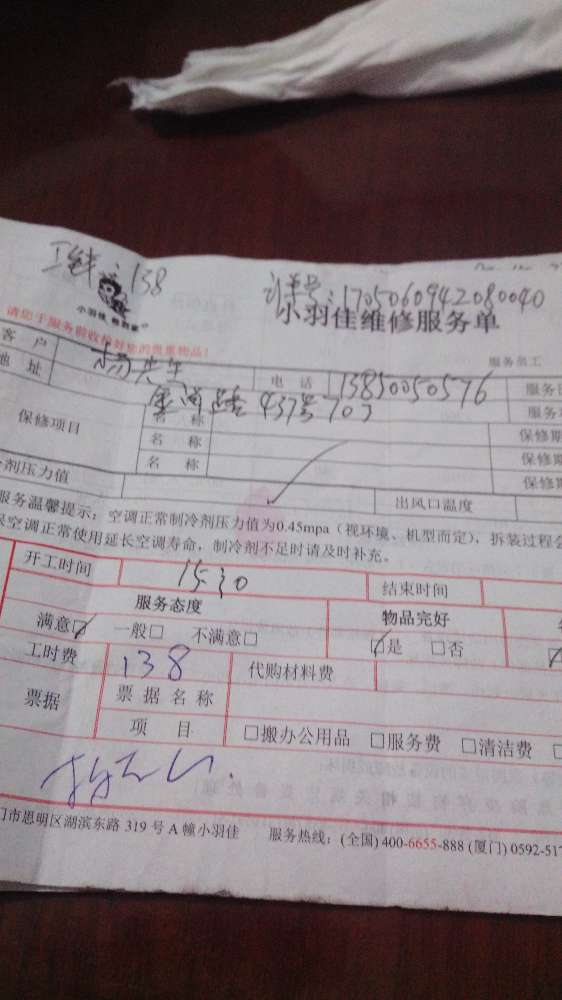 138
订单号:1705060942080040
小羽佳维修服务单
请您于服务前收拾好您的贵重物品!
服务员工
客 户 杨先生 电 话 13850050576
地 址 路437号703
保修项目 名 称 保修期
名 称 保修期
名 称 保修期
剂压力值 出风口温度
服务温馨提示:空调正常制冷剂压力值为0.45mpa(视环境、机型而定),拆装过程会
保空调正常使用延长空调寿命,制冷剂不足时请及时补充。
开工时间 15:30 结束时间
服务态度 物品完好
满意☑ 一般□ 不满意□ ☑是 □否
工时费 138 代购材料费
票据 票 据 名 称
项 目 □搬办公用品 □服务费 □清洁费
门市思明区湖滨东路 319 号 A 幢小羽佳 服务热线:(全国) 400-6655-888 (厦门) 0592-517